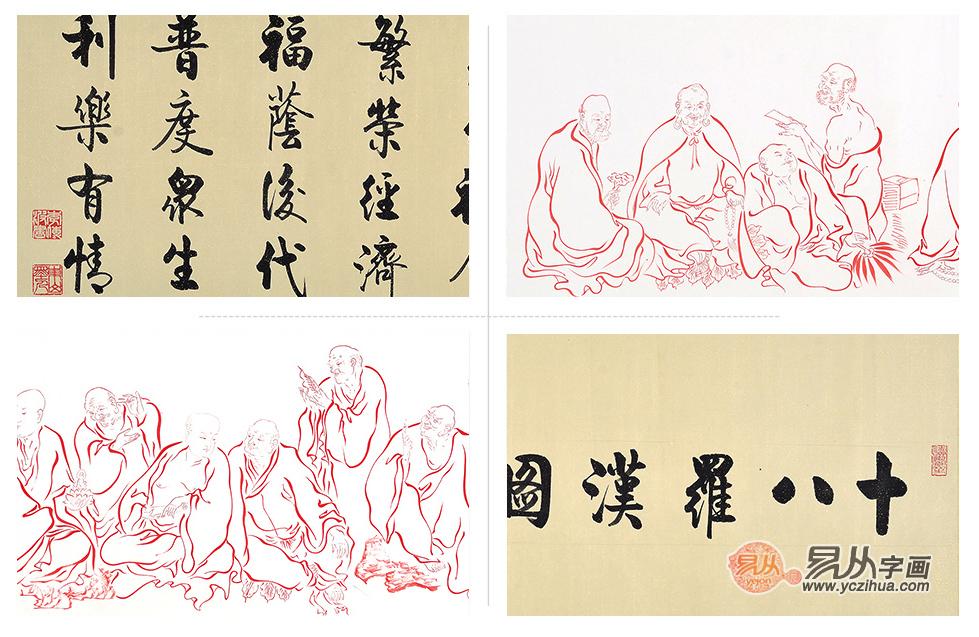 繁榮經濟
福蔭後代
普度眾生
利樂有情
十八羅漢圖
易从
yejon
易从字画
www.yczihua.com